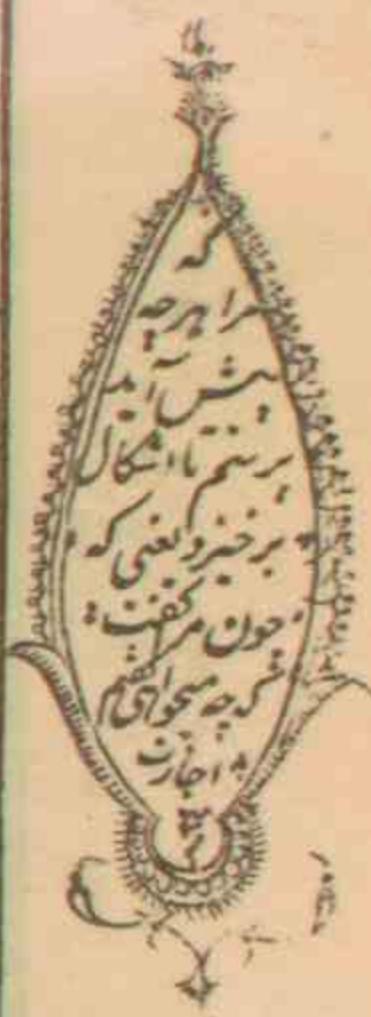 که
مرا هرچه
پیش آید
بر بینم تا اشکال
برخیزد یعنی که
چون مرا گفت
که چه میخواهی گفتم
اجازت